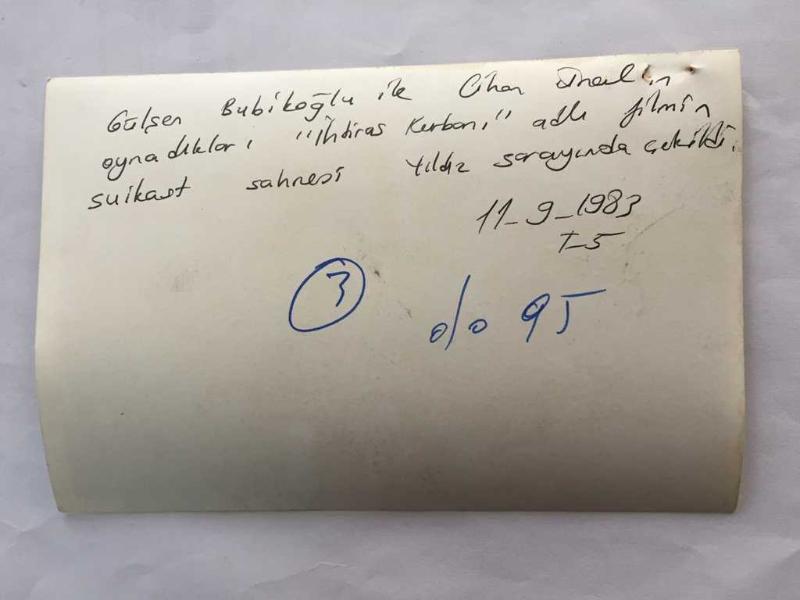 Gülşen Bubikoğlu ile Cihan Ünal'ın
oynadıkları "İhtiras Kurbanı" adlı filmin
suikast sahnesi Yıldız sarayında çekildi.
11-9-1983
T-5
3
%95